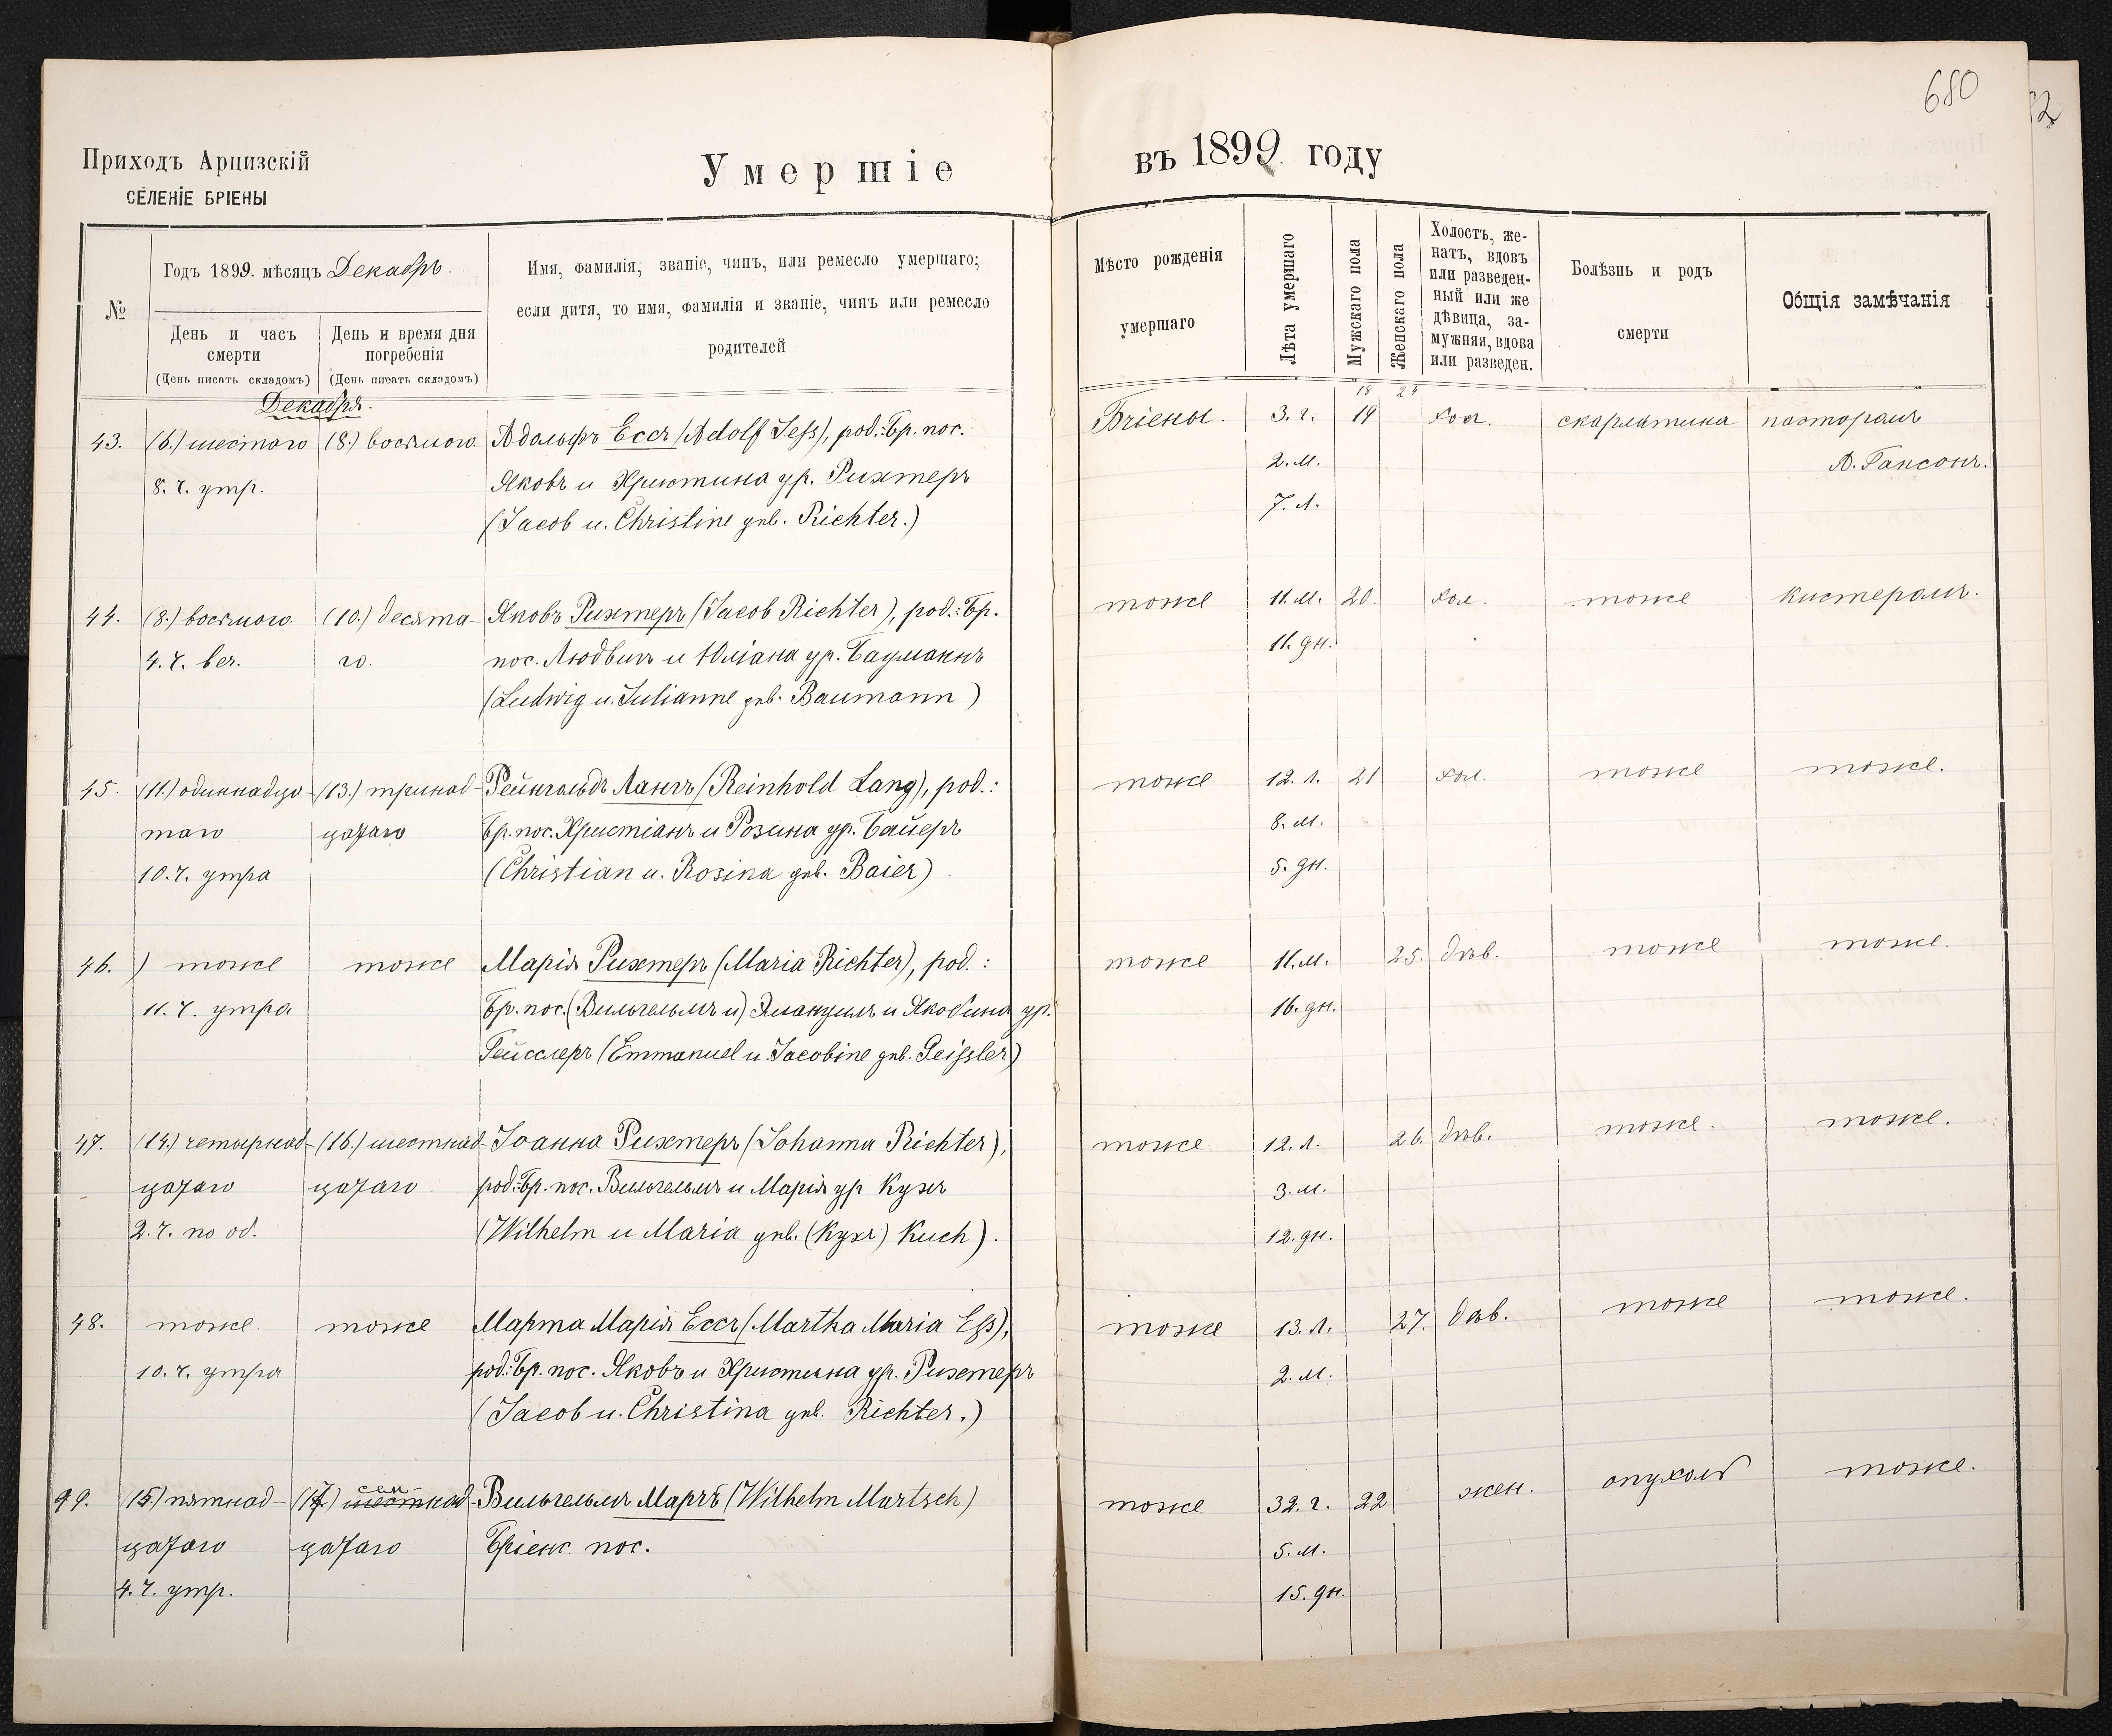 680
32
Приходъ Арцизскій
СЕЛЕНІЕ БРІЕНЫ
Умершіе
въ 1899. году
№
Годъ 1899. мѣсяцъ Декабрь.
День и часъ смерти
(День писать складомъ)
День и время дня погребенія
(День писать складомъ)
Имя, фамилія, званіе, чинъ, или ремесло умершаго;
если дитя, то имя, фамилія и званіе, чинъ или ремесло
родителей
Мѣсто рожденія
умершаго
Лѣта умершаго
Мужскаго пола
Женскаго пола
Холостъ, же-
натъ, вдовъ
или разведен-
ный или же
дѣвица, за-
мужняя, вдова
или разведен.
Болѣзнь и родъ
смерти
Общія замѣчанія
Декабря.
18 24
43. (6.) шестого (8.) восьмого Адольфъ Ессъ (Adolf Jess), род.: Бр. пос. Бріены. 3. г. 19 хол. скарлатина пасторамъ
2. м. А. Гансонъ.
8. ч. утр. Яковъ и Христина ур. Рихтеръ
7. д.
(Jacob u. Christine урв. Richter.)
44. (8.) восьмого (10.) десята- Яковъ Рихтеръ (Jacob Richter), род.: Бр. тоже 11. м. 20. хол. тоже кистеромъ.
4. ч. веч. го. пос. Людвигъ и Юліана ур. Бауманнъ 11. дн.
(Ludwig u. Julianne урв. Baumann)
45. (11.) одиннадца- (13.) тринад- Рейнгольдъ Лангъ (Reinhold Lang), род.: тоже 12. л. 21 хол. тоже тоже.
таго цатаго Бр. пос. Христіанъ и Розина ур. Байеръ 8. м.
10. ч. утра (Christian u. Rosina урв. Baier) 5. дн.
46. ) тоже тоже Марія Рихтеръ (Maria Richter), род.: тоже 11. м. 25. дѣв. тоже тоже.
11. ч. утра Бр. пос. (Вильгельмъ и) Эмануилъ и Якобина ур. 16. дн.
Гейсслеръ (Emmanuel u. Jacobine урв. Geissler)
47. (14.) четырнад- (16.) шестнад- Іоанна Рихтеръ (Johanna Richter), тоже 12. л. 26. дѣв. тоже. тоже.
цатаго цатаго род.: Бр. пос. Вильгельмъ и Марія ур Кухъ 3. м.
2. ч. по об. (Wilhelm u Maria урв. (Кухъ) Kuch). 12. дн.
48. тоже. тоже Марта Марія Ессъ (Martha Maria Ess), тоже 13. л. 27. дѣв. тоже тоже.
10. ч. утра род.: Бр. пос. Яковъ и Христина ур. Рихтеръ 2. м.
(Jacob u. Christina урв. Richter.)
49. (15.) пятнад- (17.) семнад- Вильгельмъ Марчъ (Wilhelm Martsch) тоже 32. г. 22 жен. опухоль тоже.
цатаго цатаго Бріенс. пос. 5. м.
4. ч. утр. 15. дн.